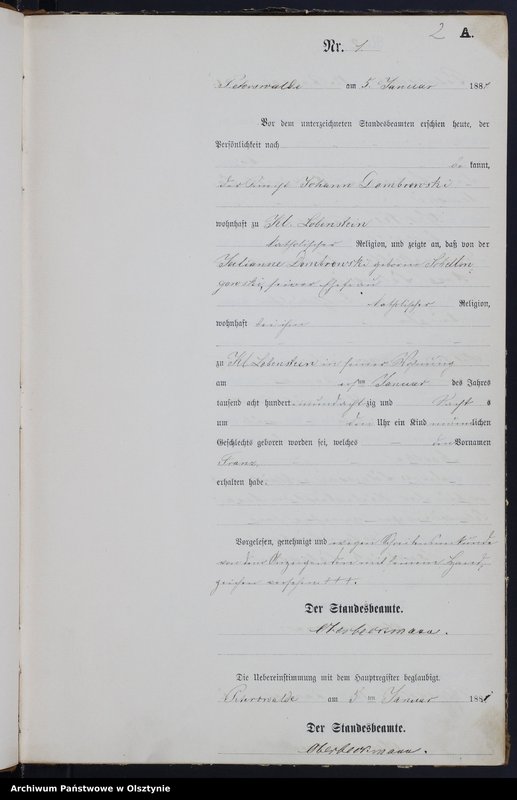 2 A.
Nr. 1.
Peterswalde am 5. Januar 1881
Vor dem unterzeichneten Standesbeamten erschien heute, der
Persönlichkeit nach
be kannt,
der Johann Dombrowski
wohnhaft zu Kl. Lobenstein
katholischer Religion, und zeigte an, daß von der
Julianne Dombrowski geborne
seiner Ehefrau
katholischer Religion,
wohnhaft bei ihm
zu Kl. Lobenstein in seiner Wohnung
am ersten Januar des Jahres
tausend acht hundert einundachtzig und Nachts
um drei Uhr ein Kind männlichen
Geschlechts geboren worden sei, welches den Vornamen
Franz
erhalten habe.
Vorgelesen, genehmigt und wegen Schreibensunkunde
von dem Anzeigenden mit seinem Hand-
zeichen versehen +++.
Der Standesbeamte.
Die Uebereinstimmung mit dem Hauptregister beglaubigt.
Peterswalde am 5 ten Januar 1881
Der Standesbeamte.
Archiwum Państwowe w Olsztynie